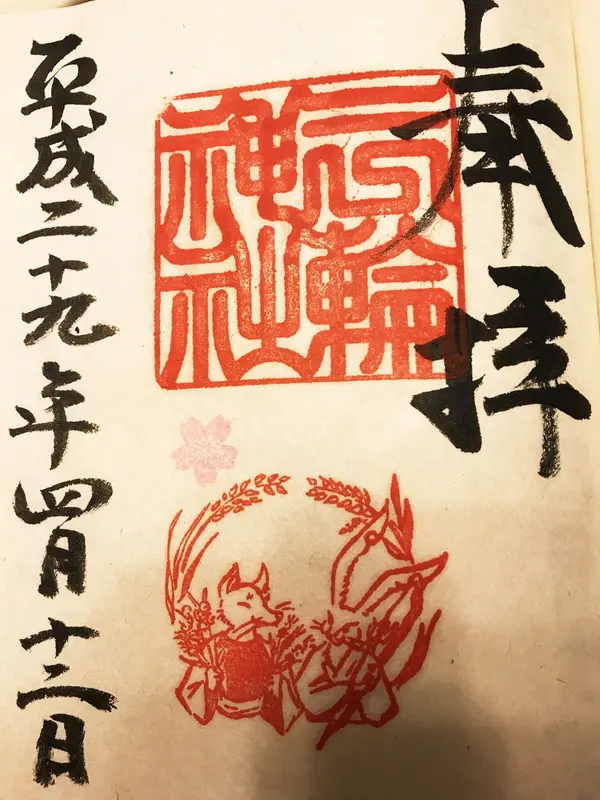 奉拝
輪神社
平成二十九年四月十二日